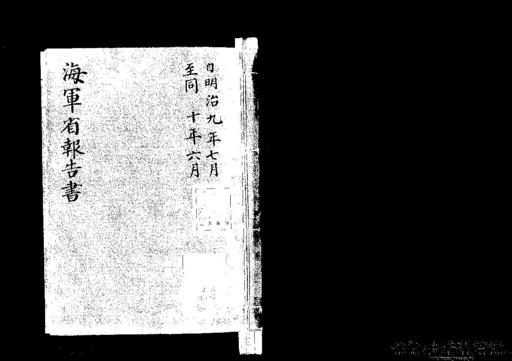 自明治九年七月
至同 十年六月
海軍省報告書